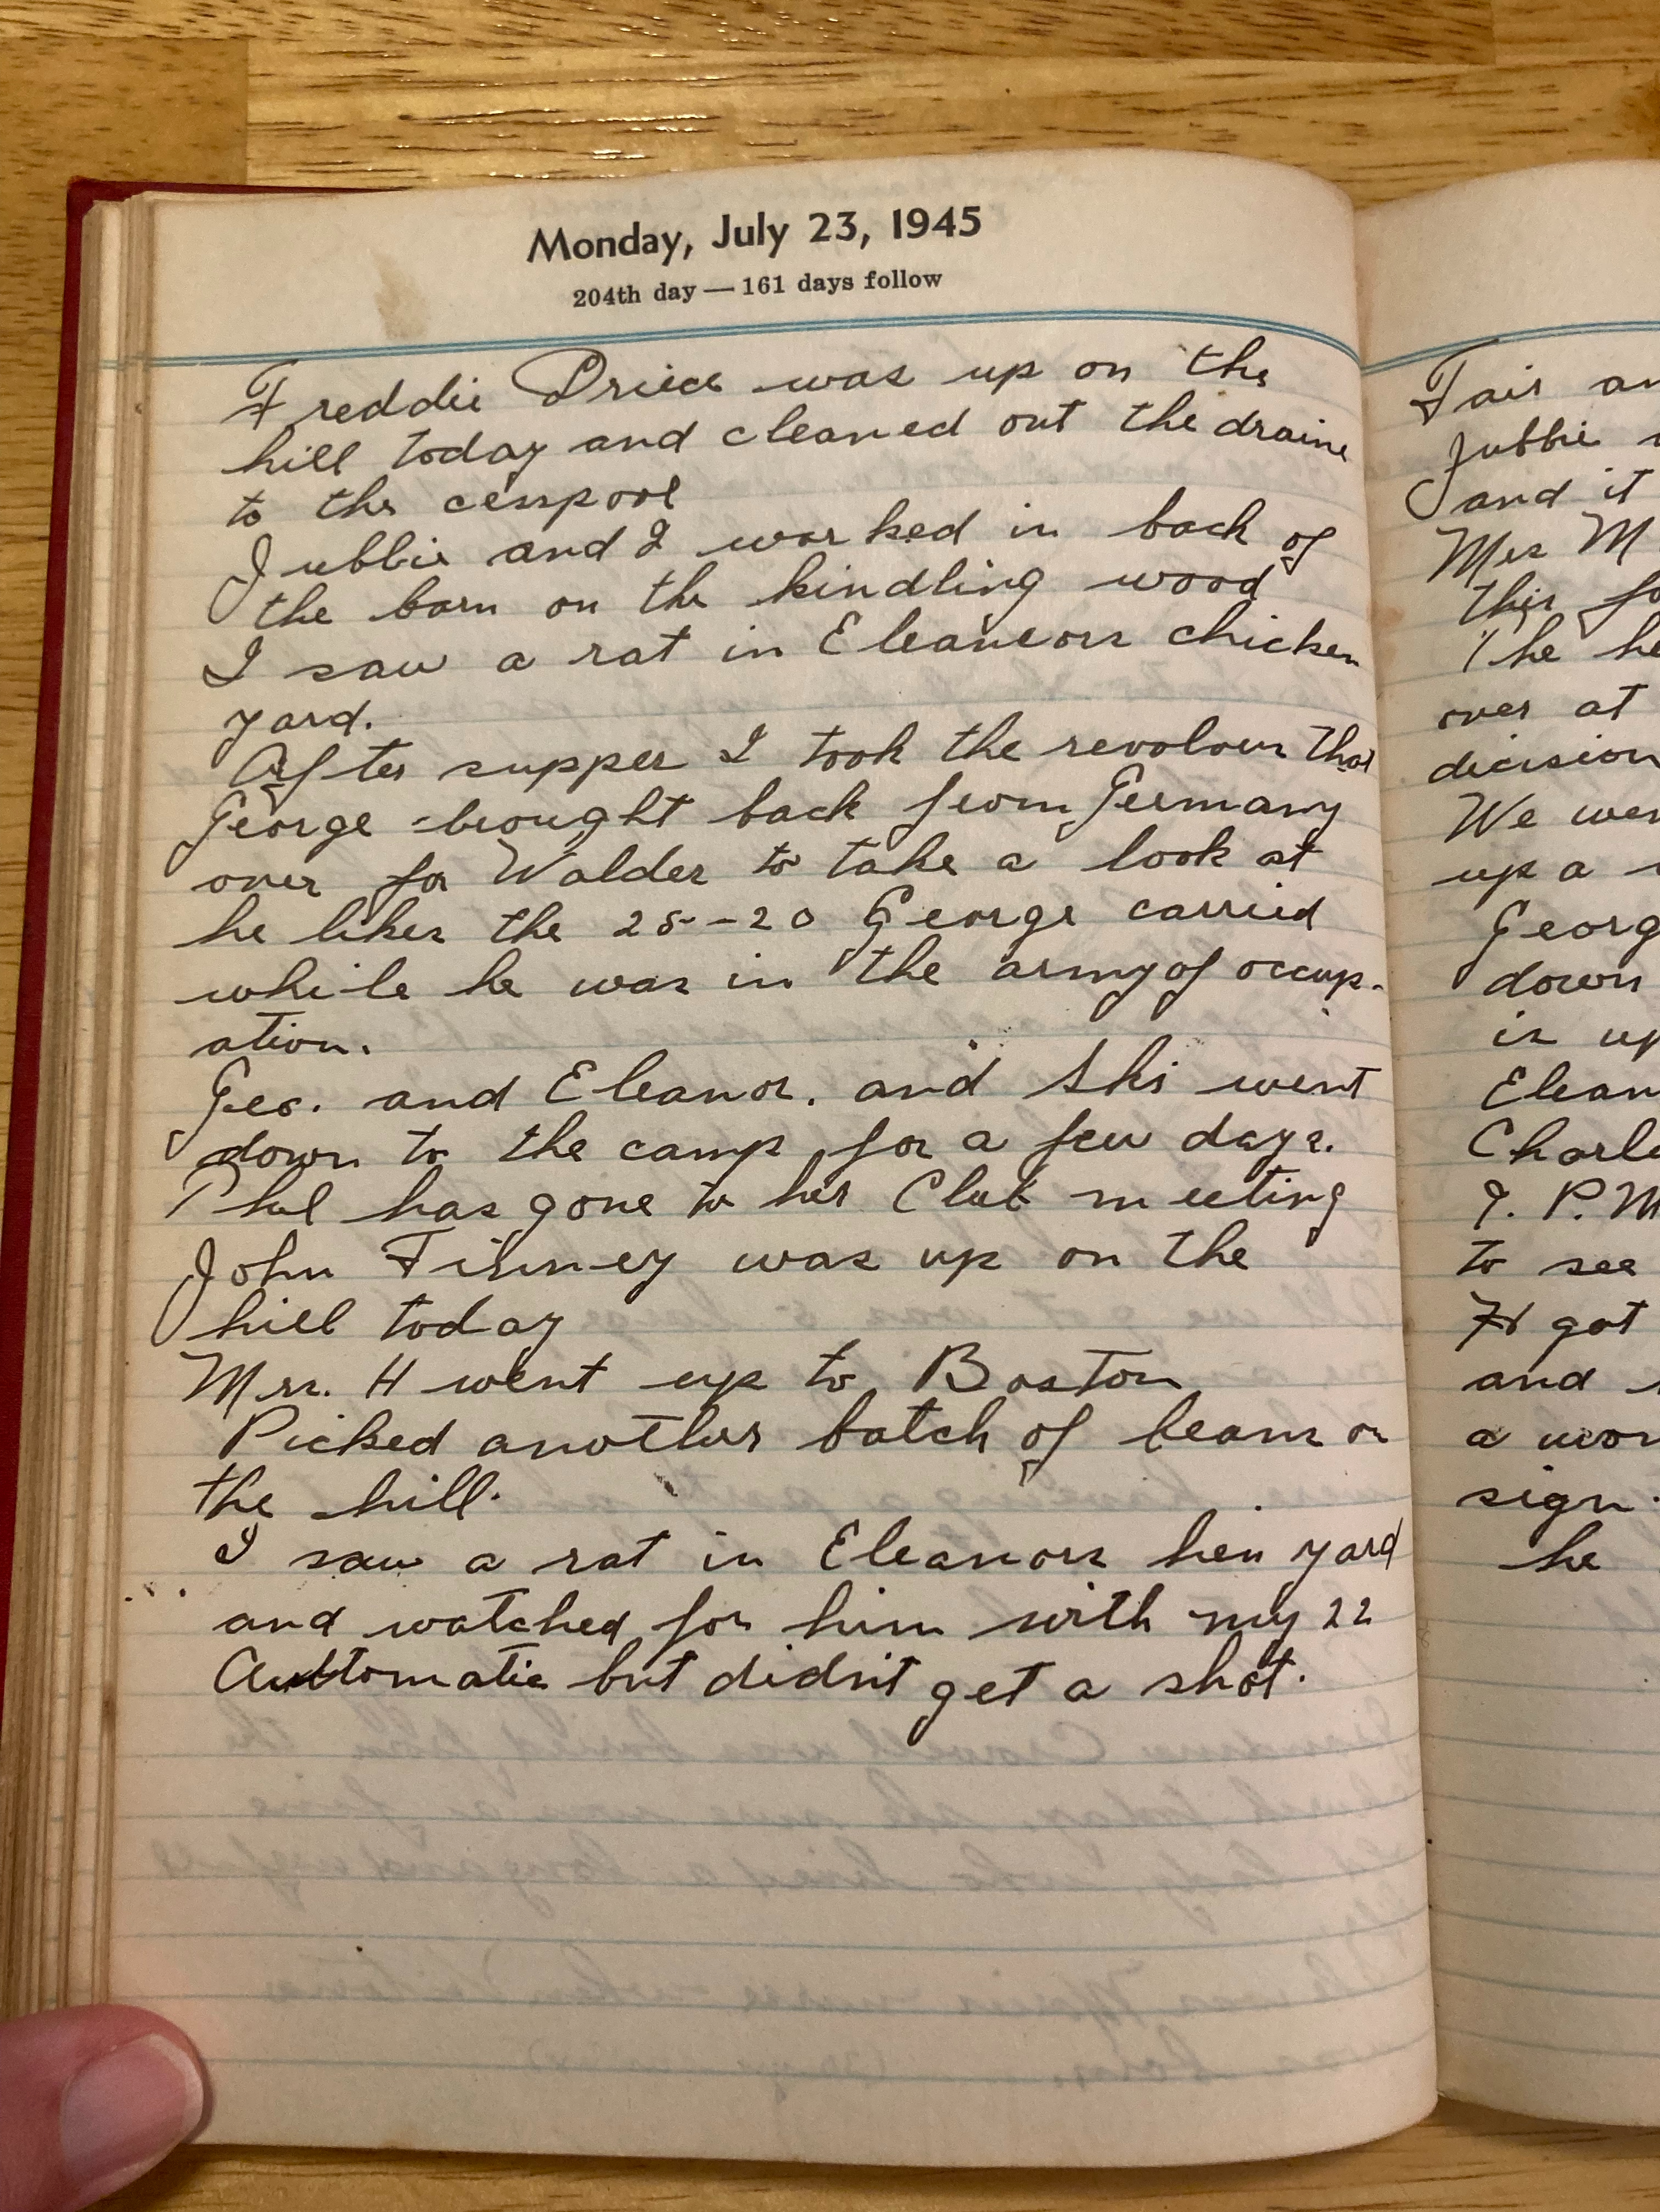 Monday, July 23, 1945
204th day — 161 days follow
Freddie Price was up on the
hill today and cleaned out the drains
to the cesspool
Jubbie and I worked in back of
the barn on the kindling wood
I saw a rat in Eleaneors chicken
yard.
After supper I took the revolver that
George brought back from Germany
over for Walder to take a look at
he likes the 25--20 George carried
while he was in the army of occup-
ation.
Geo. and Eleanor. and Ski went
down to the camp for a few days.
Phil has gone to her Club meeting
John Finney was up on the
hill today
Mrs. H went up to Boston
Picked another batch of beans on
the hill.
I saw a rat in Eleanors hen yard
and watched for him with my 22
Automatic but didn't get a shot.
Fair
Jubbie
and it
Mrs M
this
The
over at
decision
We
up a
down
is up
to see
got
and
a
sign.
he